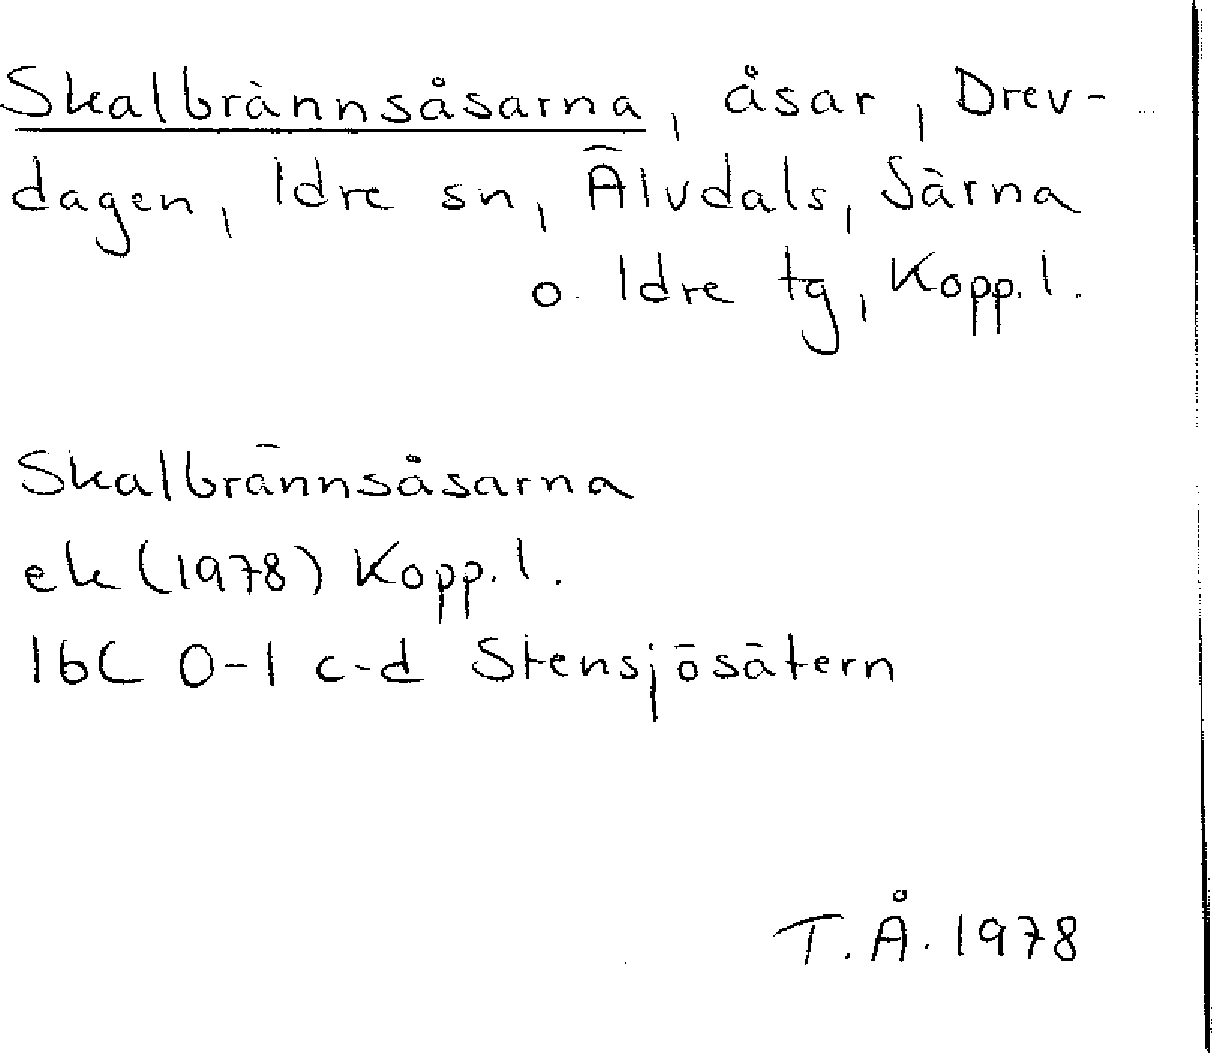 Skalbrännsåsarna, åsar, Drev-
dagen, Idre sn, Älvdals, Särna
o. Idre tg, Kopp. l.
Skalbrännsåsarna
ek (1978) Kopp. l.
16C 0-1 c-d Stensjösätern
T. Å. 1978